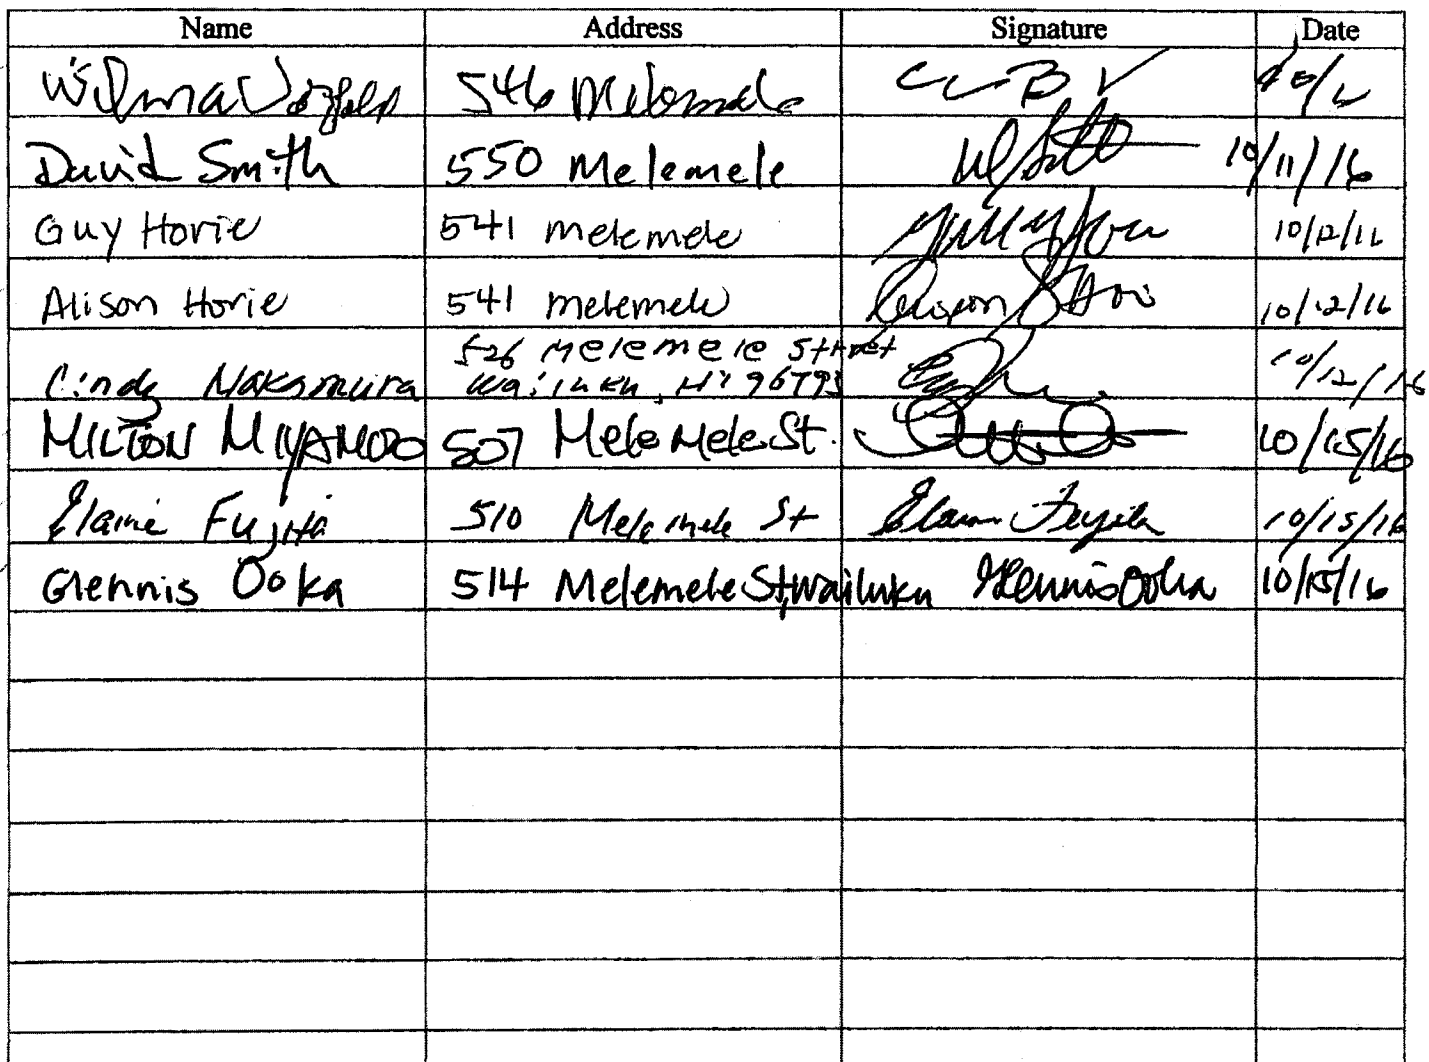 Name Address Signature Date
Wilma 546 Melemele
David Smith 550 Melemele 10/11/16
Guy Horie 541 melemele 10/12/16
Alison Horie 541 melemele 10/12/16
526 Melemele Street
Cindy Nakamura Wailuku, Hi 96793 10/12/16
MILTON MIYAMOTO 507 MeleMele St. 10/15/16
Elaine Fujita 510 Melemele St Elaine Fujita 10/15/16
Glennis Ooka 514 Melemele St, Wailuku Glennis Ooka 10/15/16